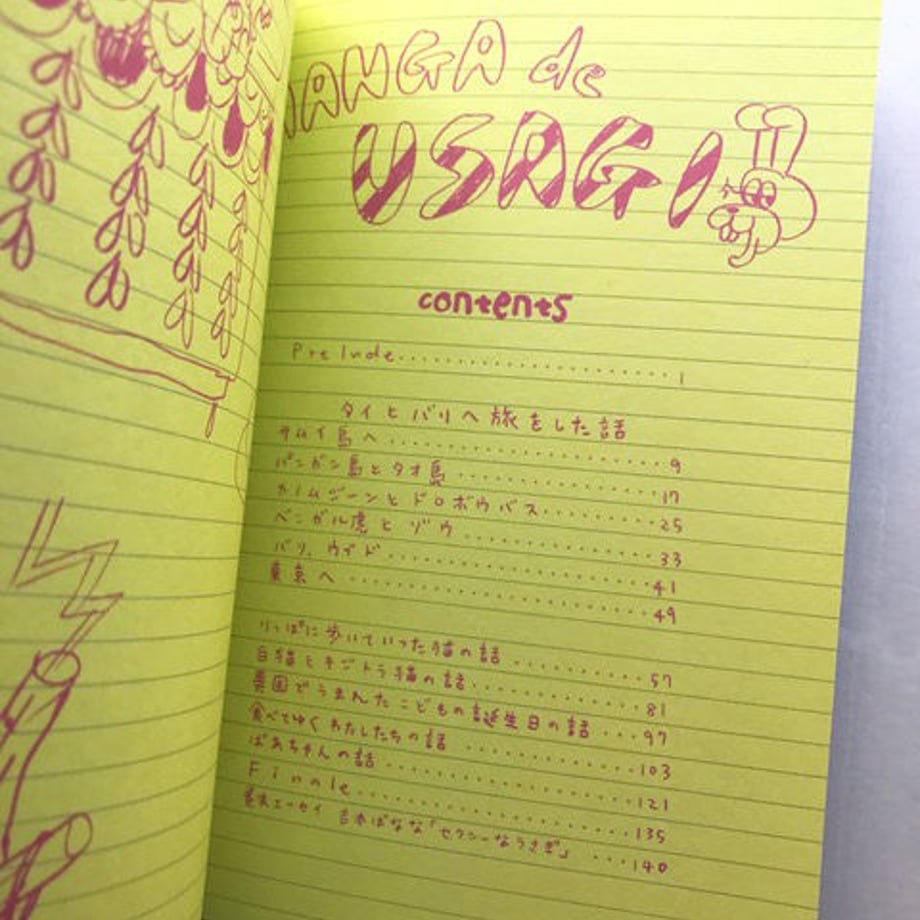 MANGA de
USAGI
contents
Prelude....................1
タイとバリへ旅をした話
サムイ島へ....................9
パンガン島とタオ島....................17
カノムジーンとドロボウバス....................25
ベンガル虎とゾウ....................33
バリ、ウブド....................41
東京へ....................49
りっぱに歩いていった猫の話....................57
白猫とキジトラ猫の話....................81
異国でうまれたこどもの誕生日の話...97
食べてゆくわたしたちの話....................103
ばあちゃんの話....................121
Finale....................135
巻末エッセイ 吉本ばなな「セクシーなうさぎ」...140